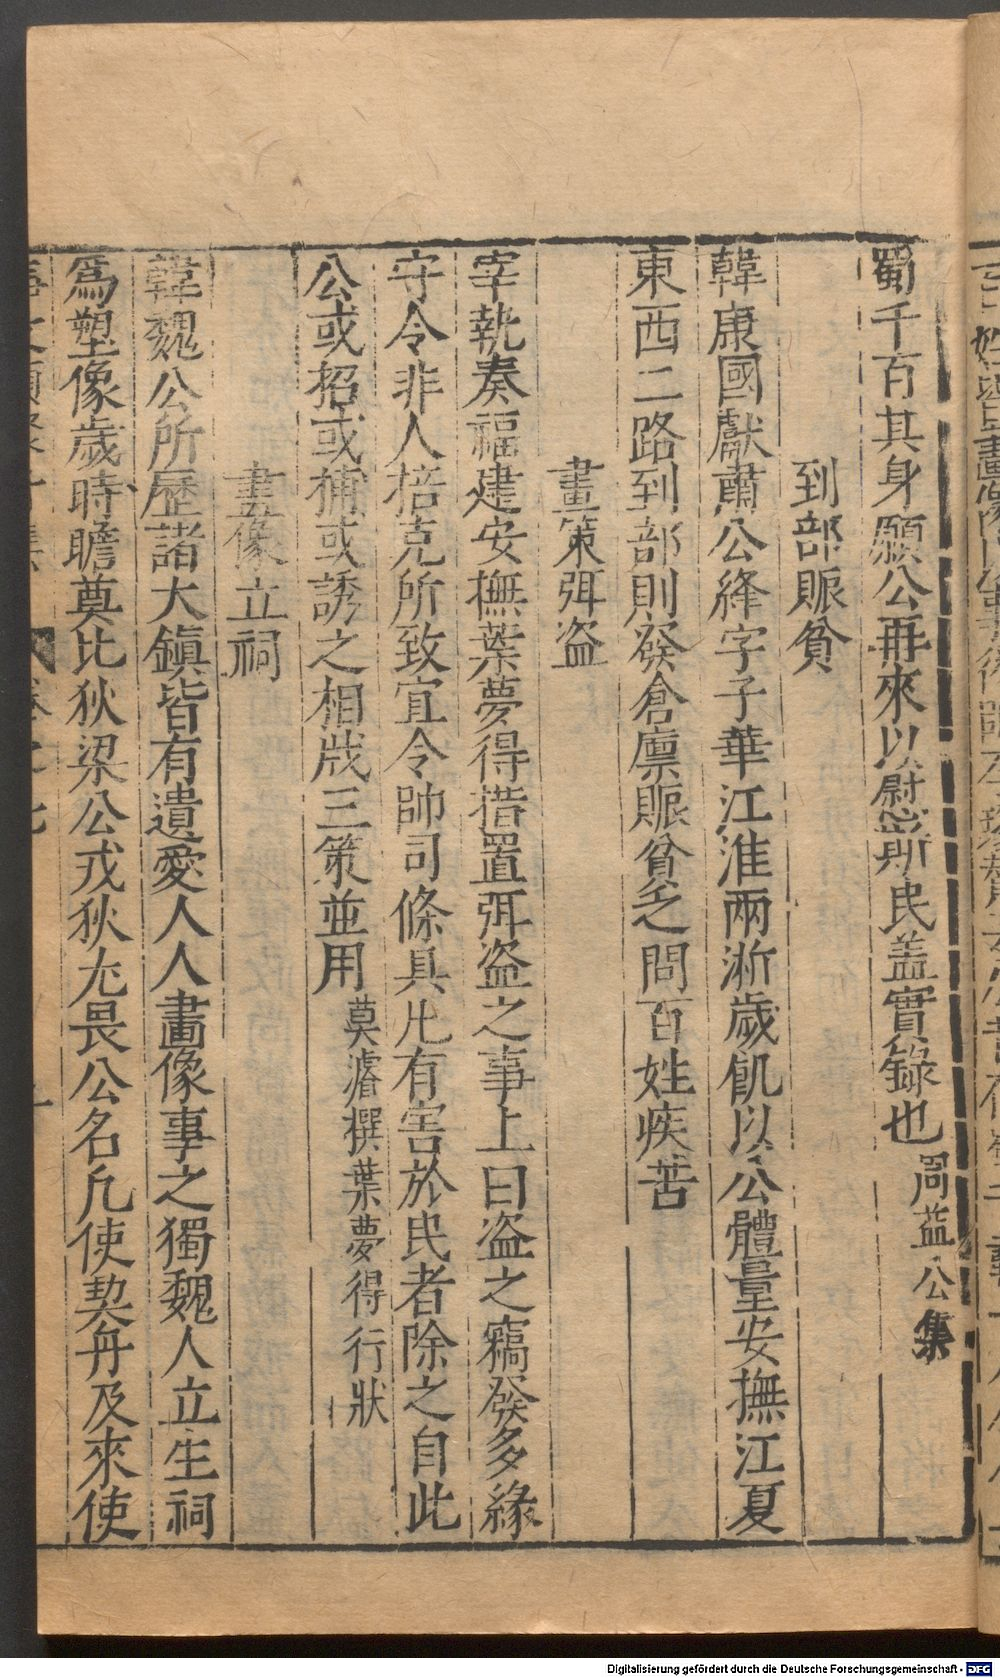 蜀千百其身願公再來以慰斯民盖實錄也周益公集
到部賑貧
韓康國獻肅公絳字子華江淮兩淛歲飢以公體量安撫江夏
東西二路到部則發倉廪賑貧乏問百姓疾苦
畫策弭盗
宰執奏福建安撫葉夢得措置弭盗之事上曰盗之竊發多緣
守令非人掊克所致宜令帥司條具凡有害於民者除之自此
公或招或捕或誘之相戕三策並用莫濬撰葉夢得行狀
畫像立祠
韓魏公所歷諸大鎮皆有遺愛人人畫像事之獨魏人立生祠
爲塑像歲時瞻奠比狄梁公戎狄尢畏公名凢使契丹及來使
Digitalisierung gefördert durch die Deutsche Forschungsgemeinschaft - DFG